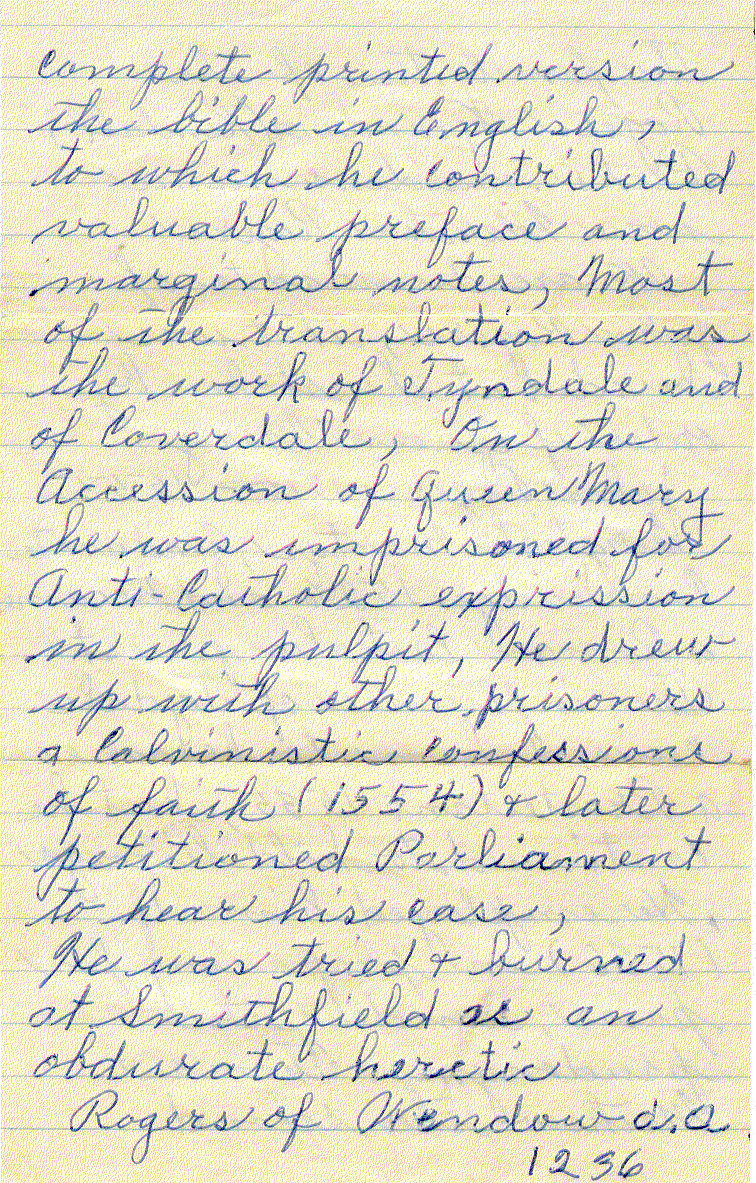 complete printed version
the bible in English,
to which he contributed
valuable preface and
marginal notes, Most
of the translation was
the work of Tyndale and
of Coverdale, On the
Accession of Queen Mary
he was imprisoned for
Anti-Catholic exprission
in the pulpit, He drew
up with other prisoners
a Calvinistic Confessions
of faith (1554) & later
petitioned Parliament
to hear his case,
He was tried & burned
at Smithfield as an
obdurate heretic
Rogers of Wendow d.a.
1236